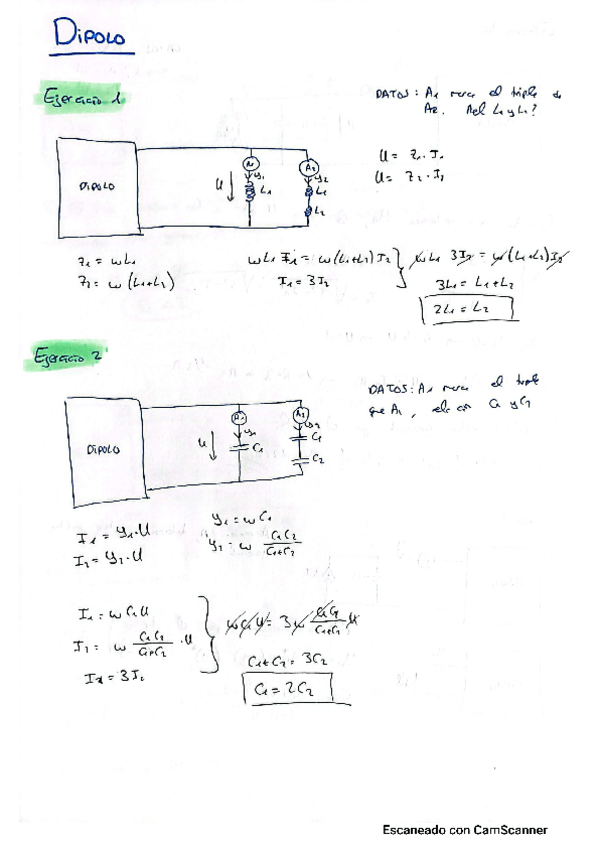 DIPOLO
Ejercicio 1
DATOS: A1 marca el triple de
A2. Rel L1 y L2?
DIPOLO
U
A1
I1
L1
A2
I2
L1
L2
U = Z1 · I1
U = Z2 · I2
Z1 = ωL1
Z2 = ω(L1+L2)
ωL1 I1 = ω(L1+L2) I2
I1 = 3I2
ωL1 3I2 = ω(L1+L2)I2
3L1 = L1+L2
2L1 = L2
Ejercicio 2
DATOS: A1 marca el triple
que A2, C1 y C2
DIPOLO
U
A1
Y1
C1
A2
Y2
C1
C2
I1 = Y1·U
I2 = Y2·U
Y1 = ωC1
Y2 = ω C1C2/C1+C2
I1 = ωC1U
I2 = ω C1C2/C1+C2 · U
I1 = 3I2
ωC1U = 3ω C1C2/C1+C2 U
C1+C2 = 3C2
C1 = 2C2
Escaneado con CamScanner